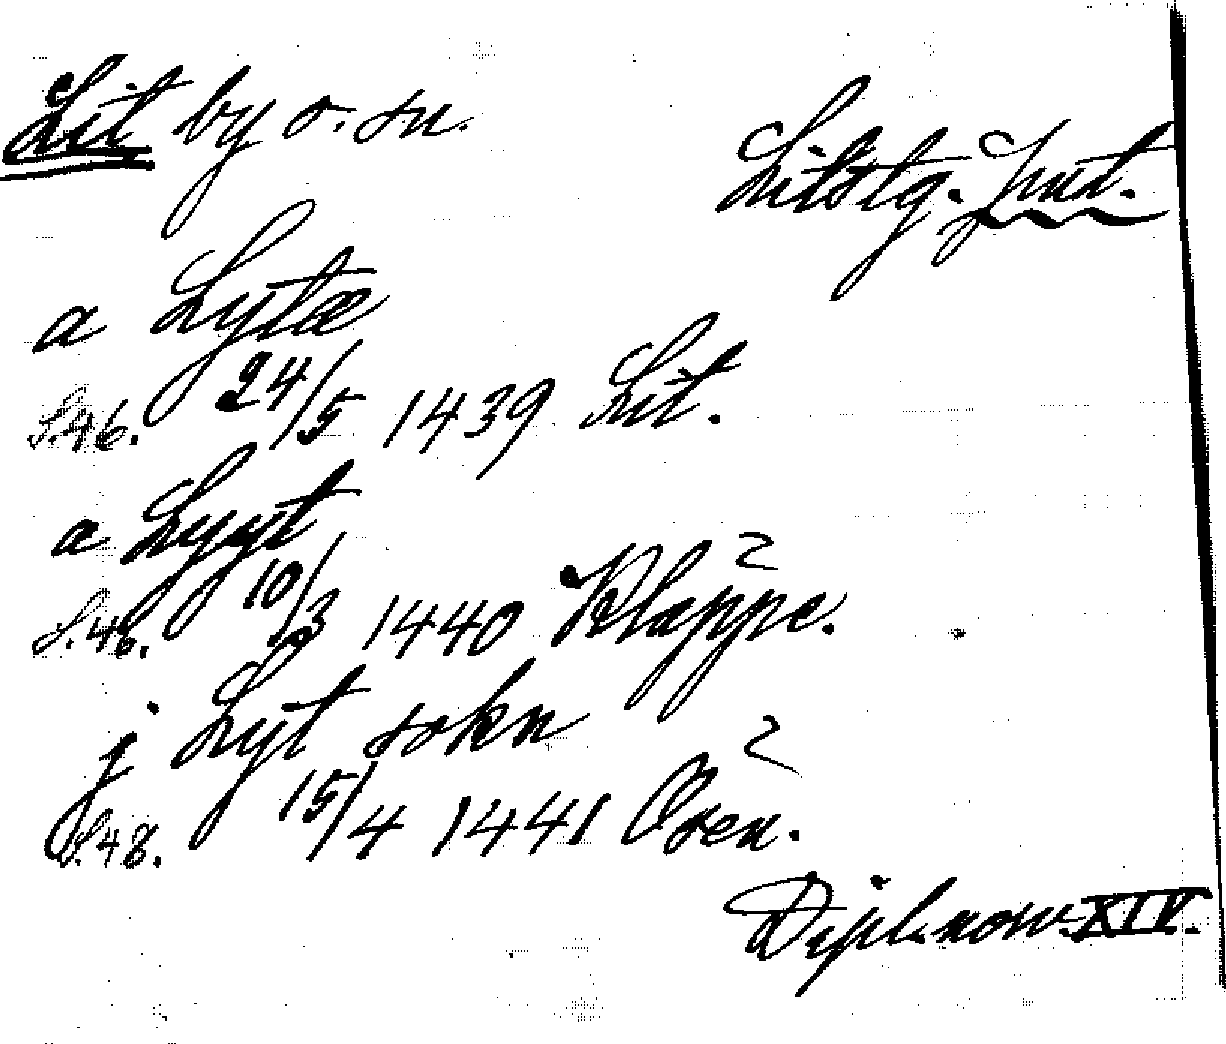 Lit by o. sn.
Litstg. Jmt.
a Lytæ
S.46. 24/5 1439 Lit.
a Lyyt
S.46. 10/3 1440 Klæppe. ?
j Lyt sokn
S.48. 15/4 1441 Osen. ?
Dipl. norv. XIV.